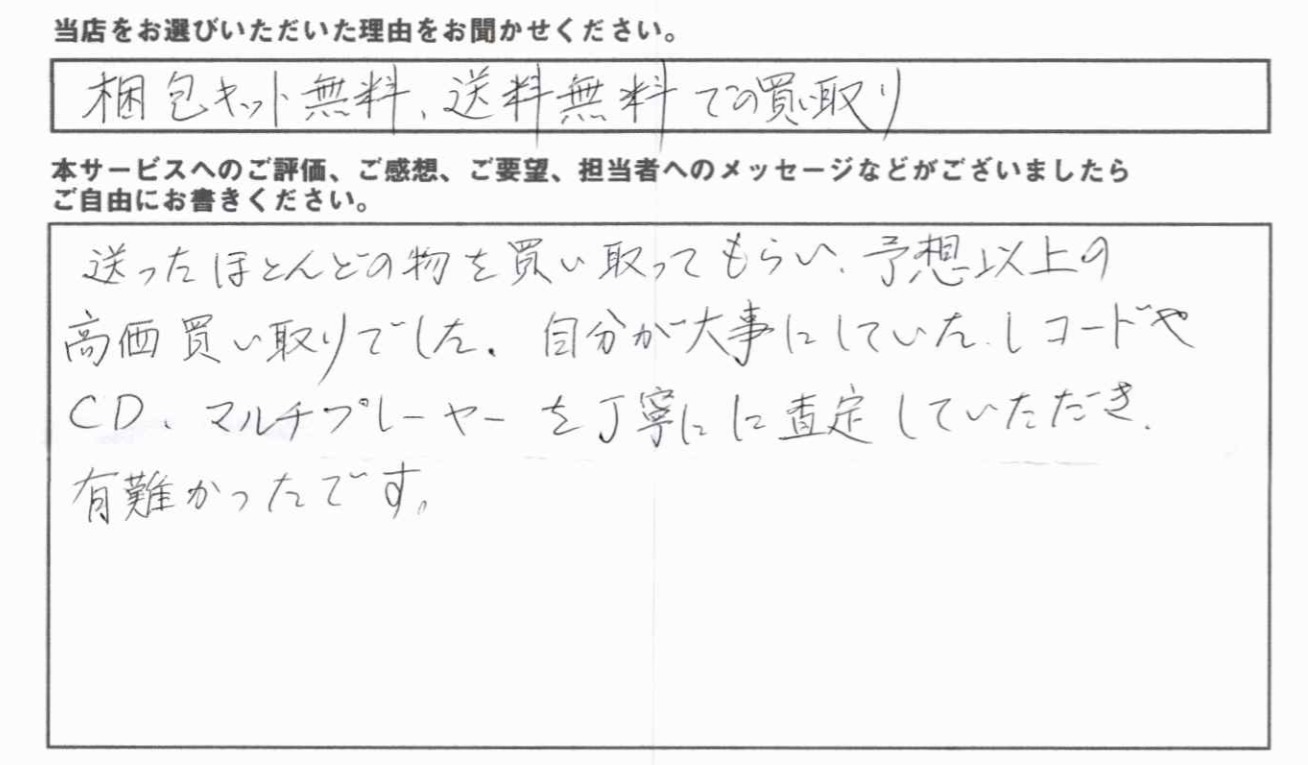 当店をお選びいただいた理由をお聞かせください。
梱包キット無料、送料無料での買い取り
本サービスへのご評価、ご感想、ご要望、担当者へのメッセージなどがございましたら
ご自由にお書きください。
送ったほとんどの物を買い取ってもらい、予想以上の
高価買い取りでした。自分が大事にしていたレコードや
CD、マルチプレーヤーを丁寧にに査定していただき、
有難かったです。